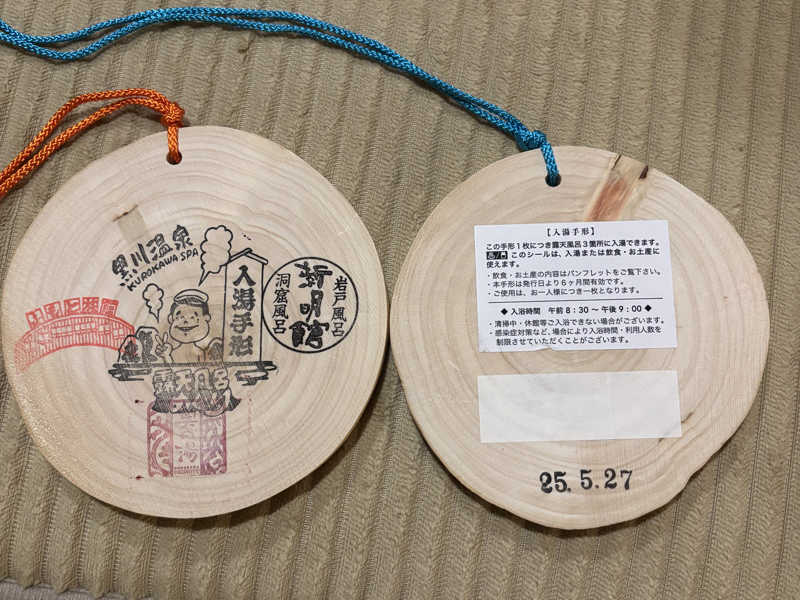 黒川温泉
KUROKAWA SPA
入湯手形
露天風呂
岩戸風呂
新明館
洞窟風呂
【入湯手形】
この手形１枚につき露天風呂３箇所に入湯できます。
このシールは、入湯または飲食・お土産に
使えます。
・飲食・お土産の内容はパンフレットをご覧下さい。
・本手形は発行日より６ヶ月間有効です。
・ご使用は、お一人様につき一枚となります。
◆ 入浴時間　午前８：３０ ～ 午後９：００ ◆
・清掃中・休館等ご入浴できない場合がございます。
・感染症対策など、場合により入浴時間・利用人数を
制限させていただくことがございます。
25. 5. 27